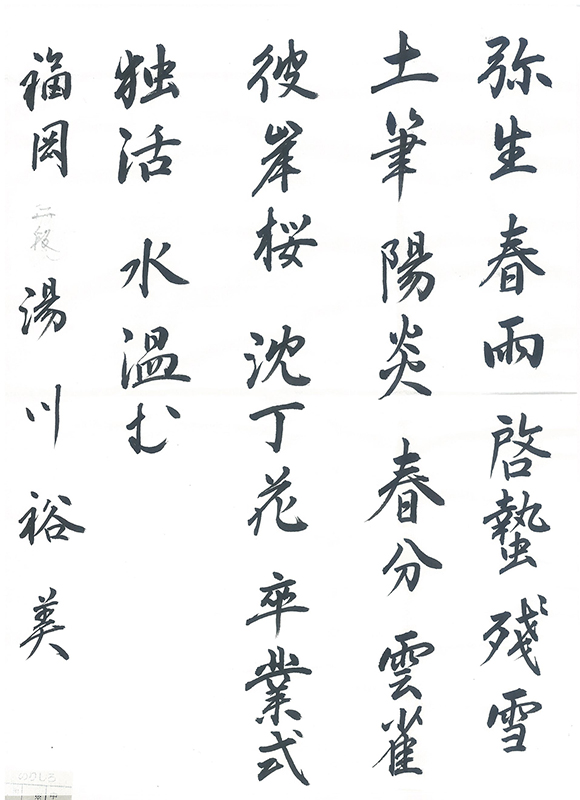 弥生 春雨 啓蟄 残雪
土筆 陽炎 春分 雲雀
彼岸桜 沈丁花 卒業式
独活 水温む
福岡 二段 湯川裕美